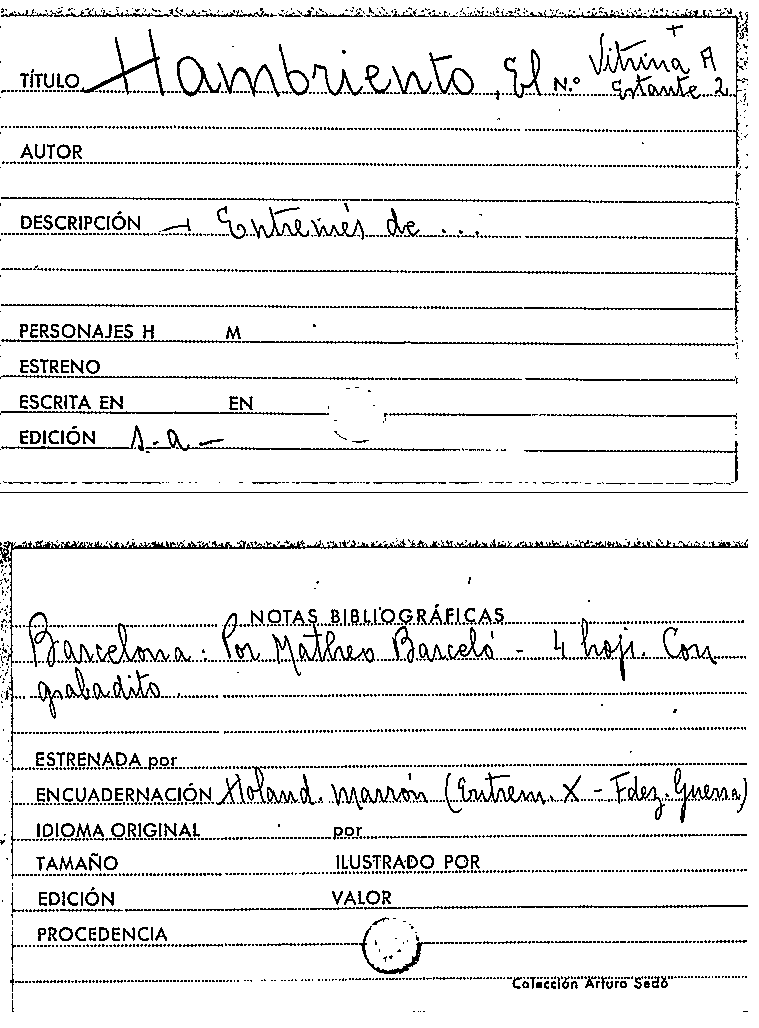 Vitrina A
TÍTULO Hambriento, El N.º Estante 2
AUTOR
DESCRIPCIÓN Entremés de ...
PERSONAJES H M
ESTRENO
ESCRITA EN EN
EDICIÓN s.a.-
NOTAS BIBLIOGRÁFICAS
Barcelona: Por Matheo Barceló - 4 hoj. Con
grabadito.
ESTRENADA por
ENCUADERNACIÓN Holand. marrón (Entrem. X - Fdez. Guerra)
IDIOMA ORIGINAL por
TAMAÑO ILUSTRADO POR
EDICIÓN VALOR
PROCEDENCIA
Colección Arturo Sedó